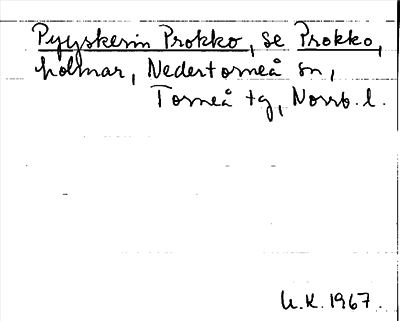 Pyyskerin Prokko, se Prokko,
holmar, Nedertorneå sn,
Torneå tg, Norrb. l.
U.K. 1967.